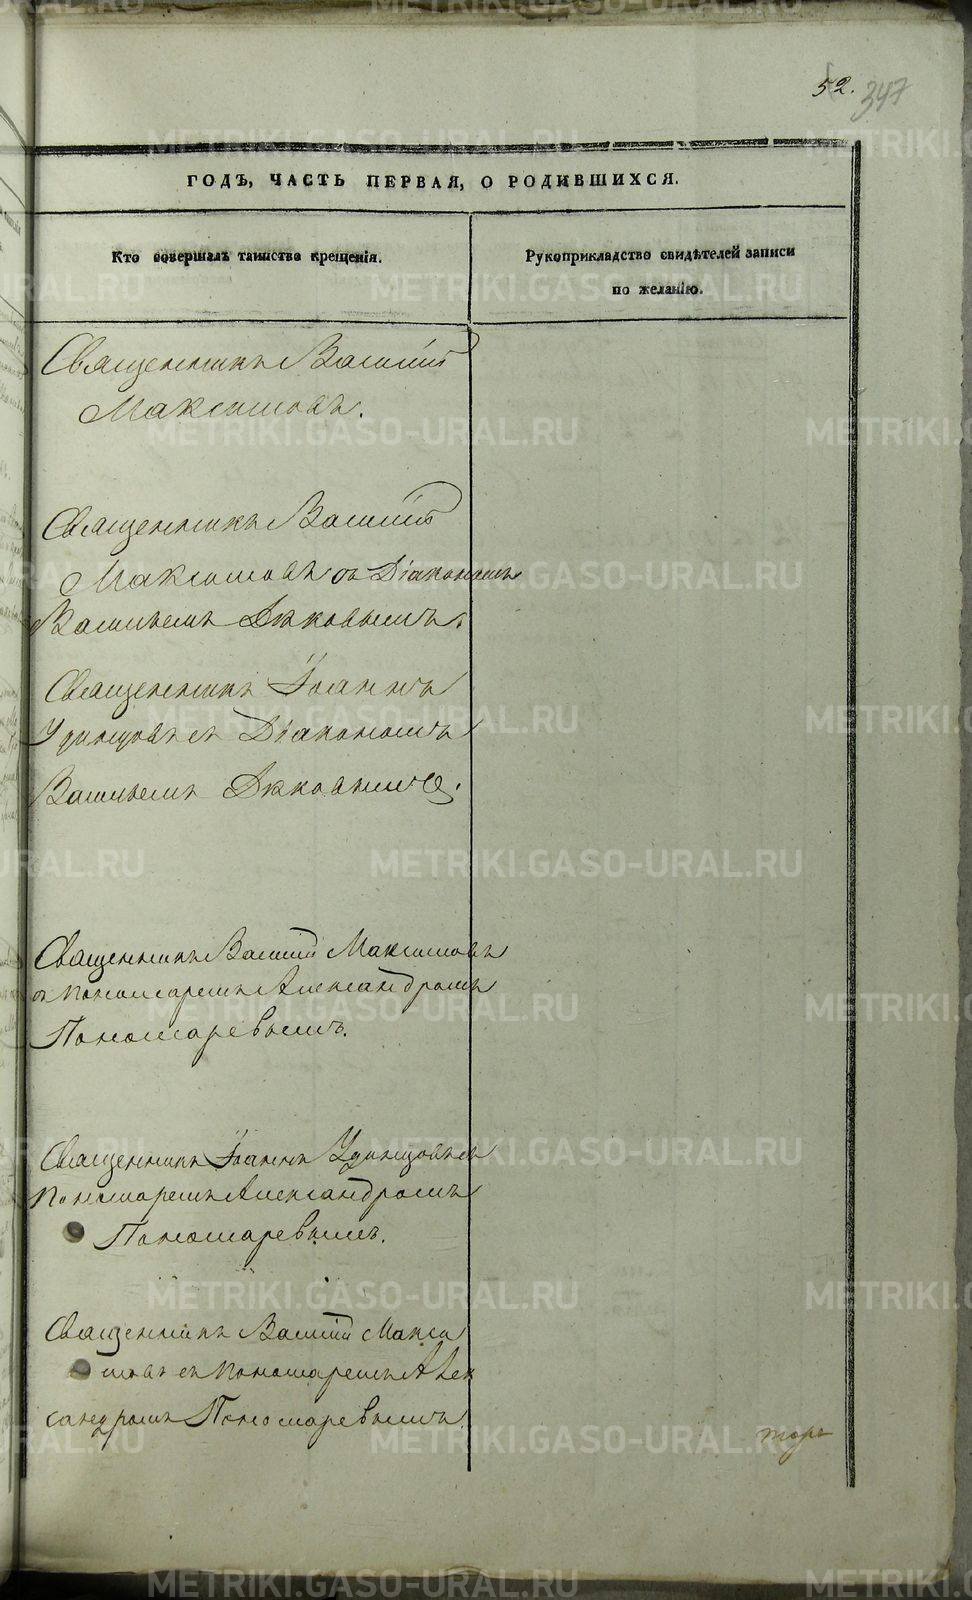 52. 347
ГОДЪ, ЧАСТЬ ПЕРВАЯ, О РОДИВШИХСЯ.
Кто совершалъ таинство крещенія.
Рукоприкладство свидѣтелей записи
по желанію.
Священникъ Василій
Максимовъ.
Священникъ Василій
Максимовъ съ Діакономъ
Васильемъ
Священникъ Іоаннъ
Удинцовъ съ Діакономъ
Васильемъ
Священникъ Василій Максимовъ
съ пономаремъ Александромъ
Пономаревымъ.
Священникъ Іоаннъ Удинцовъ съ
пономаремъ Александромъ
Пономаревымъ.
Священникъ Василій Макси
мовъ съ пономаремъ Алек
сандромъ Пономаревымъ.
METRIKI.GASO-URAL.RU